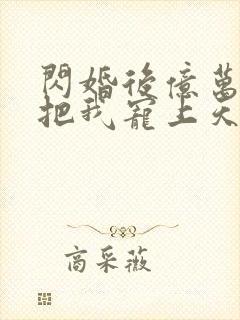 閃婚後億萬
把我寵上天
商采薇